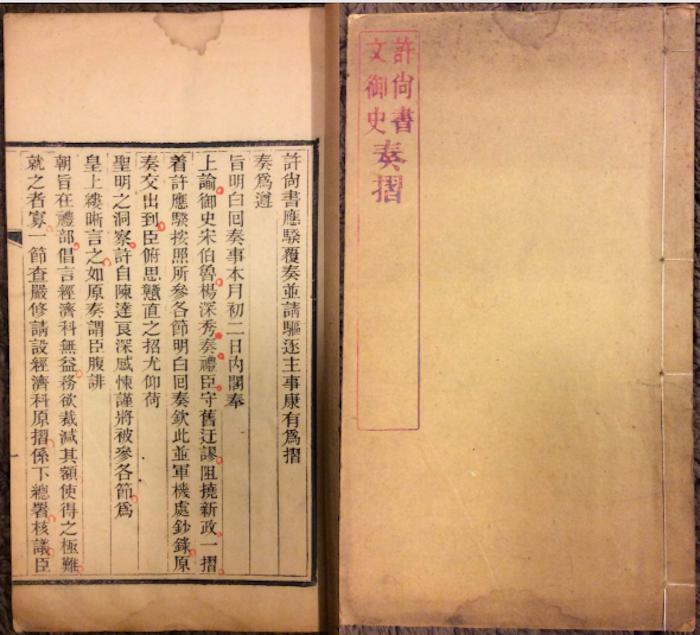 許尚書
文御史
奏摺
許尚書應騤覆奏並請驅逐主事康有爲摺
奏爲遵
旨明白回奏事本月初二日內閣奉
上諭御史宋伯魯楊深秀奏禮臣守舊迂謬阻撓新政一摺
着許應騤按照所參各節明白回奏欽此並軍機處鈔錄原
奏交出到臣俯思戇直之招尤仰荷
聖明之洞察許自陳達良深感悚謹將被參各節爲
皇上縷晰言之如原奏謂臣腹誹
朝旨在禮部倡言經濟科無益務欲裁減其額使得之極難
就之者寡一節查嚴修請設經濟科原摺係下總署核議臣